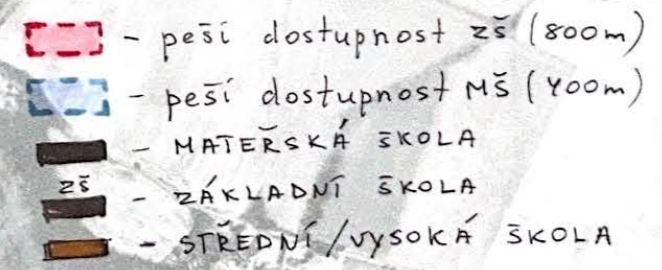 - pěší dostupnost zš (800m)
- pěší dostupnost MŠ (400m)
- MATEŘSKÁ ŠKOLA
zš
- ZÁKLADNÍ ŠKOLA
- STŘEDNÍ/VYSOKÁ ŠKOLA